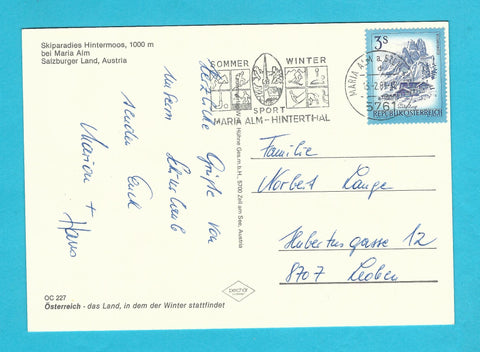 Skiparadies Hintermoos, 1000 m
bei Maria Alm
Salzburger Land, Austria
Herzliche Grüße von
unserem Schiurlaub
senden Euch
Marion + Hans
OC 227
Österreich - das Land, in dem der Winter stattfindet
Huhne Ges.m.b.H., 5700 Zell am See, Austria
SOMMER WINTER
SPORT
MARIA ALM-HINTERTHAL
MARIA ALM a. St
5761
3S
REPUBLIK ÖSTERREICH
Familie
Norbert Lange
Hubertusgasse 12
8707 Leoben